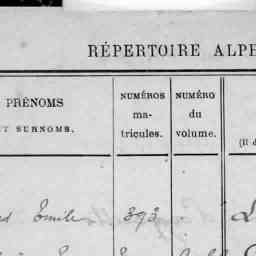 RÉPERTOIRE ALPH
PRÉNOMS
ET SURNOMS.
NUMÉROS
ma-
tricules.
NUMÉRO
du
volume.
(Il d
Emile 393